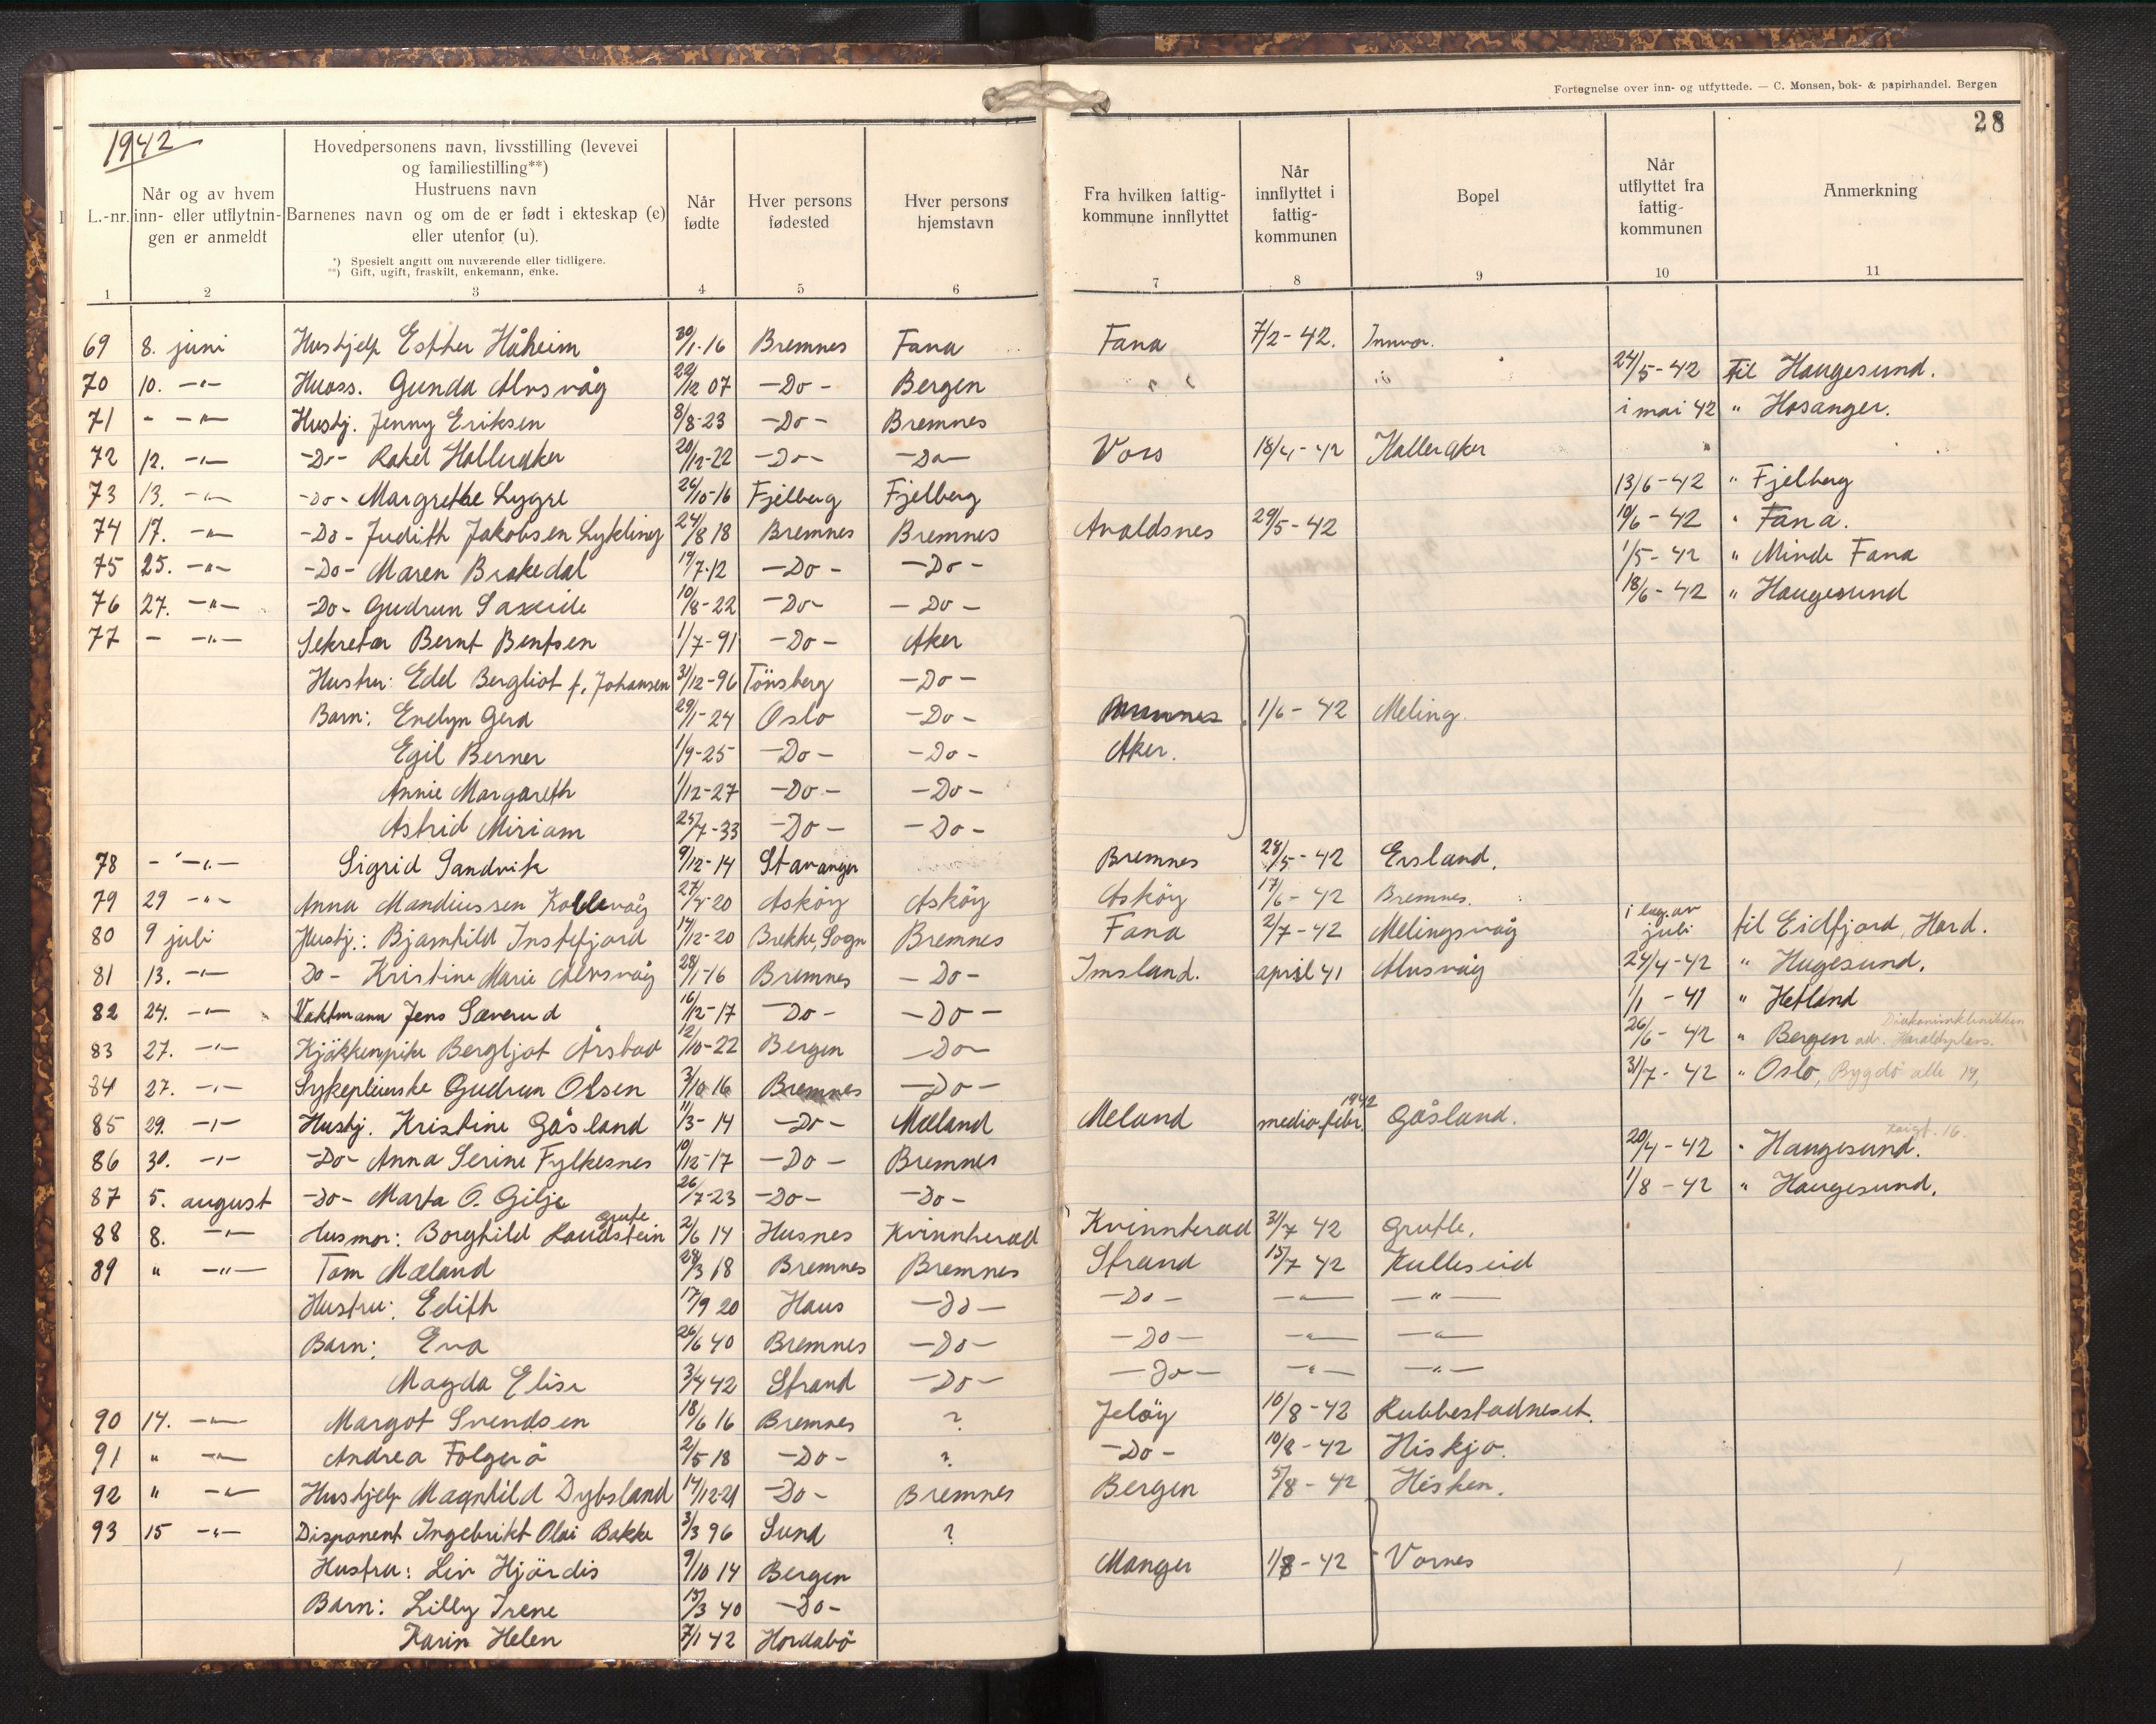 Fortegnelse over inn- og utflyttede. — C. Monsen, bok- & papirhandel. Bergen
28
1942
L.-nr. | Når og av hvem inn- eller utflytningen er anmeldt | Hovedpersonens navn, livsstilling (levevei og familiestilling**) Hustruens navn Barnenes navn og om de er født i ekteskap (e) eller utenfor (u). | Når fødte | Hver persons fødested | Hver persons hjemstavn | Fra hvilken fattigkommune innflyttet | Når innflyttet i fattigkommunen | Bopel | Når utflyttet fra fattigkommunen | Anmerkning
*) Spesielt angitt om nuværende eller tidligere.
**) Gift, ugift, fraskilt, enkemann, enke.
1 2 3 4 5 6 7 8 9 10 11
69 8. juni Hushjelp Esther Håheim 30/1-16 Bremnes Fana Fana 7/2-42. Innvær.
70 10. -"- Huass. Gunda Alvsvåg 29/12 07 -Do- Bergen 24/5-42 til Haugesund.
71 - -"- Hushj. Jenny Eriksen 8/8-23 -Do- Bremnes i mai 42 " Hosanger.
72 12. -"- -Do- Rakel Halleraker 20/12-22 -Do- -Do- Voss 18/4-42 Halleraker
73 13. -"- -Do- Margrethe Lygre 26/10-16 Fjelberg Fjelberg 13/6-42 " Fjelberg
74 17. -"- -Do- Judith Jakobsen Lykling 24/8 18 Bremnes Bremnes Avaldsnes 29/5-42 10/6-42 " Fana.
75 25. -"- -Do- Maren Brakedal 19/7-12 -Do- -Do- 1/5-42 " Minde Fana
76 27. -"- -Do- Gudrun Saxeide 10/8-22 -Do- -Do- 18/6-42 " Haugesund
77 - -"- Sekretær Bernt Bentsen 1/7-91 -Do- Aker
Hustru: Edel Bergliot f. Johansen 31/12-96 Tönsberg -Do-
Barn: Evelyn Gerd 29/1-24 Oslo -Do- Bremnes 1/6-42 Meling.
Egil Berner 1/9-25 -Do- -Do- Aker.
Annie Margareth 1/12-27 -Do- -Do-
Astrid Miriam 25/7-33 -Do- -Do-
78 -"-"- Sigrid Sandvik 9/12-14 Stavanger Bremnes 28/5-42 Ersland.
79 29 -"- Anna Mandiussen Kollevåg 27/4-20 Askøy Askøy Askøy 17/6-42 Bremnes.
80 9 juli Hushj.: Bjarnhild Instefjord 14/12-20 Brekke, Sogn Bremnes Fana 2/7-42 Melingsvåg i beg. av juli til Eidfjord, Hard.
81 13. -"- Do- Kristine Marie Alvsvåg 28/1-16 Bremnes -Do- Imsland. april 41 Alvsvåg 24/4-42 " Hugesund.
82 24. -"- Vaktmann Jens Sæverud 16/12-17 -Do- -Do- 1/1-41 " Hetland
83 27. -"- Kjökkenpike Bergljot Årstad 12/10-22 Bergen -Do- 26/6-42 " Bergen adr. Haraldsplass.
84 27. -"- Sykepleierske Gudrun Olsen 3/10 16 Bremnes -Do- 31/7-42 " Oslo, Bygdö alle 19,
85 29. -"- Hushj. Kristine Gåsland 11/3-14 -Do- Mæland Meland medio febr. 1942 Gåsland.
86 30. -"- -Do- Anna Serine Fylkesnes 10/12-17 -Do- Bremnes 20/4-42 " Haugesund.
87 5. august -Do- Marta O. Gilje 26/7-23 -Do- -Do- 1/8-42 " Haugesund.
88 8. -"- Husmor: Borghild Raudstein Grutle 2/6 14 Husnes Kvinnherad Kvinnherad 31/7 42 Grutle.
89 " -"- Tom Mæland 28/3 18 Bremnes Bremnes Strand 15/7 42 Kulleseid
Hustru: Edith 17/9 20 Haus -Do- -Do- -"- -"-
Barn: Eva 26/6 40 Bremnes -Do- -Do- -"- -"-
Magda Elise 3/4 42 Strand -Do- -Do- -"- -"-
90 14. -"- Margot Svendsen 18/6 16 Bremnes ? Jelöy 10/8-42 Rubbestadneset.
91 " -"- Andrea Folgerö 2/5 18 -Do- ? -Do- 10/8-42 Hiskjo.
92 " -"- Hushjelp Magnhild Dybsland 14/12-21 -Do- Bremnes Bergen 5/8-42 Hisken.
93 15 -"- Disponent Ingebrikt Olai Bakke 3/3 96 Sund ?
Hustru: Liv Hjördis 9/10 14 Bergen Manger 1/8-42 Vornes
Barn: Lilly Irene 15/3 40 -Do-
Karin Helen 7/1 42 Hordabö